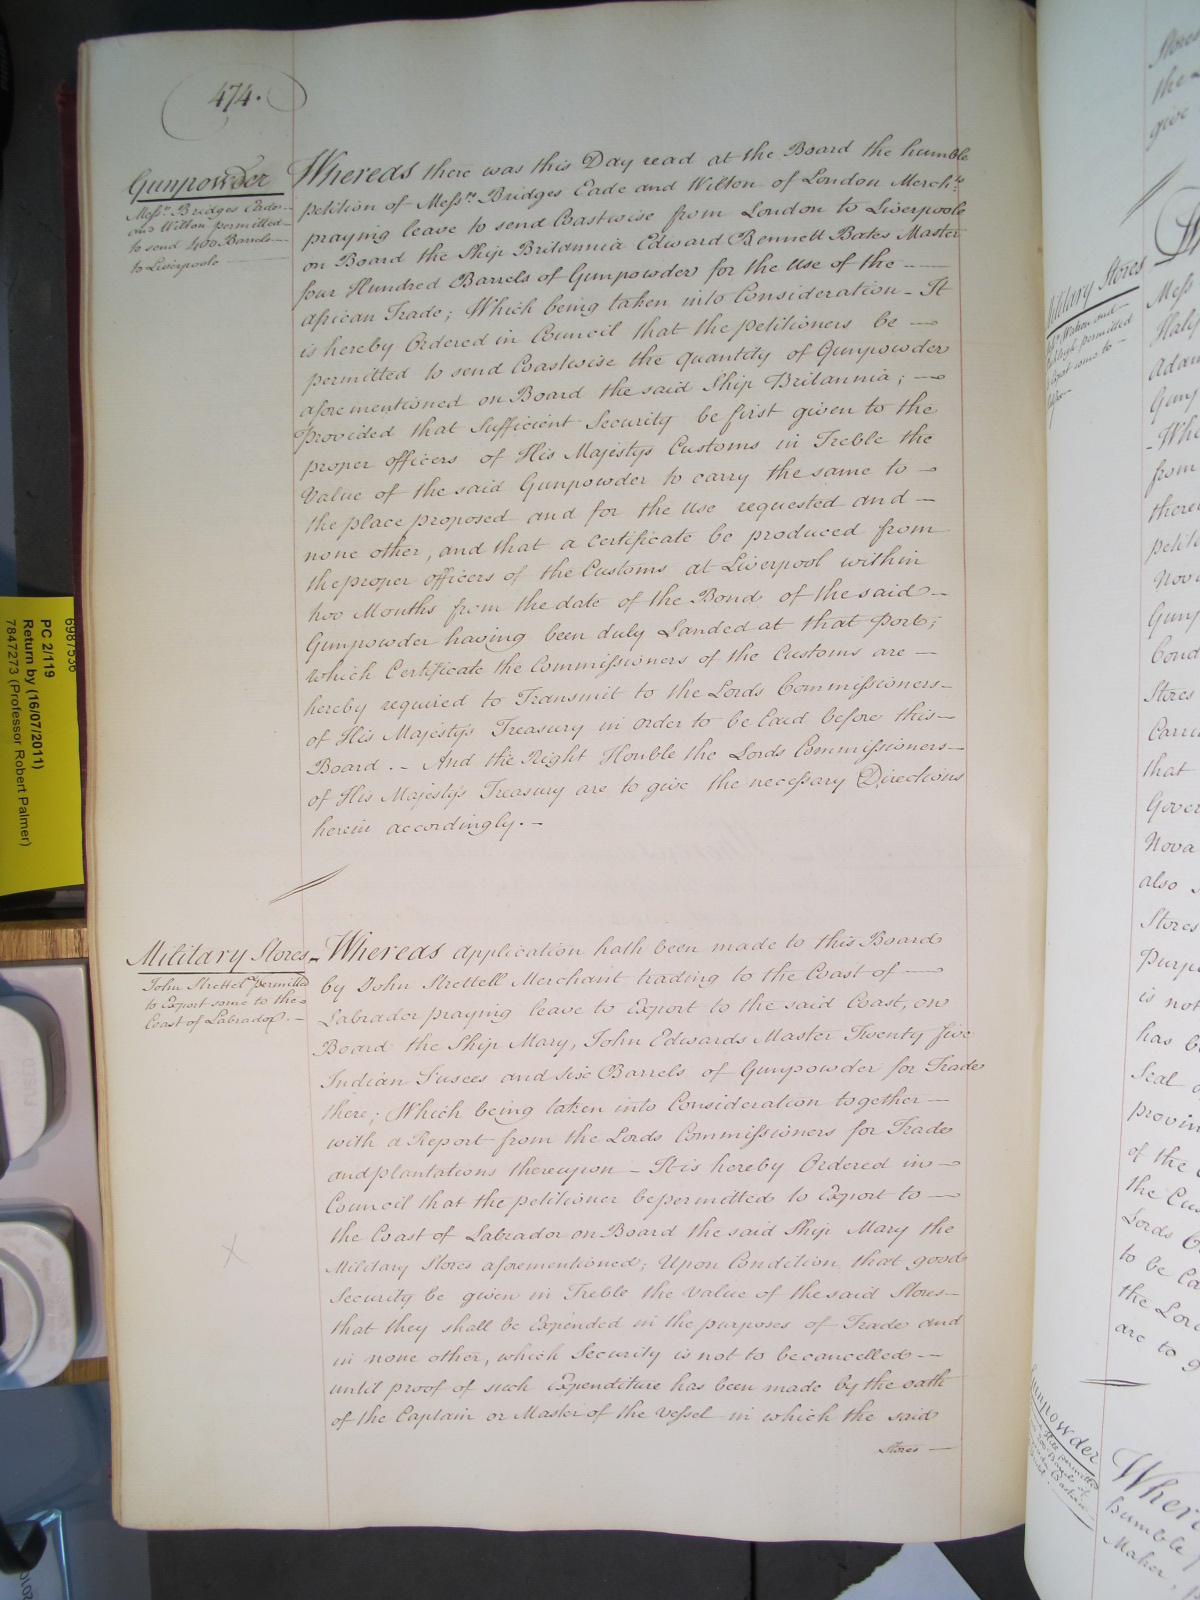 474.
Gunpowder
Messrs. Bridges Eade
and Wilton permitted
to send 400 Barrels
to Liverpoole
Whereas there was this Day read at the Board the humble
petition of Messrs. Bridges Eade and Wilton of London Merchts.
praying leave to send Coastwise from London to Liverpoole
on Board the Ship Britannia Edward Bennett Bates Master
four Hundred Barrels of Gunpowder for the Use of the
African Trade; Which being taken into Consideration - It
is hereby Ordered in Council that the petitioners be
permitted to send Coastwise the quantity of Gunpowder
aforementioned on Board the said Ship Britannia;
Provided that Sufficient Security be first given to the
proper officers of His Majestys Customs in Treble the
Value of the said Gunpowder to carry the same to
the place proposed and for the use requested and
none other, and that a Certificate be produced from
the proper officers of the Customs at Liverpool within
two Months from the date of the Bond of the said
Gunpowder having been duly Landed at that Port;
which Certificate the Commissioners of the Customs are
hereby required to Transmit to the Lords Commissioners
of His Majestys Treasury in order to be laid before this
Board. - And the Right Honble the Lords Commissioners
of His Majesty's Treasury are to give the necessary Directions
herein accordingly. -
Military Stores
John Strettel permitted
to Export some to the
Coast of Labrador. -
Whereas application hath been made to this Board
by John Strettell Merchant trading to the Coast of
Labrador praying leave to Export to the said Coast, on
Board the Ship Mary, John Edwards Master Twenty five
Indian Fusees and six Barrels of Gunpowder for Trade
there; Which being taken into Consideration together
with a Report from the Lords Commissioners for Trade
and plantations thereupon - It is hereby Ordered in
Council that the petitioner be permitted to Export to
the Coast of Labrador on Board the said Ship Mary the
Military Stores aforementioned; Upon Condition that good
Security be given in Treble the value of the said Stores
that they shall be Expended in the purposes of Trade and
in none other, which Security is not to be cancelled
until proof of such Expenditure has been made by the oath
of the Captain or Master of the Vessel in which the said
Stores
6987536
PC 2/119
Return by (16/07/2011)
7847273 (Professor Robert Palmer)
Stores
the
give
Military Stores
permitted
Mess
Adam
Gunp
from
there
petit
Nova
Gunp
Cond
Stores
Carri
that
Gover
Nova
also
Stores
Purpo
is not
has b
Seal
provin
of the
the Cus
Lords
to be La
the Lord
are to g
Gunpowder
Wher
humble
Maker,